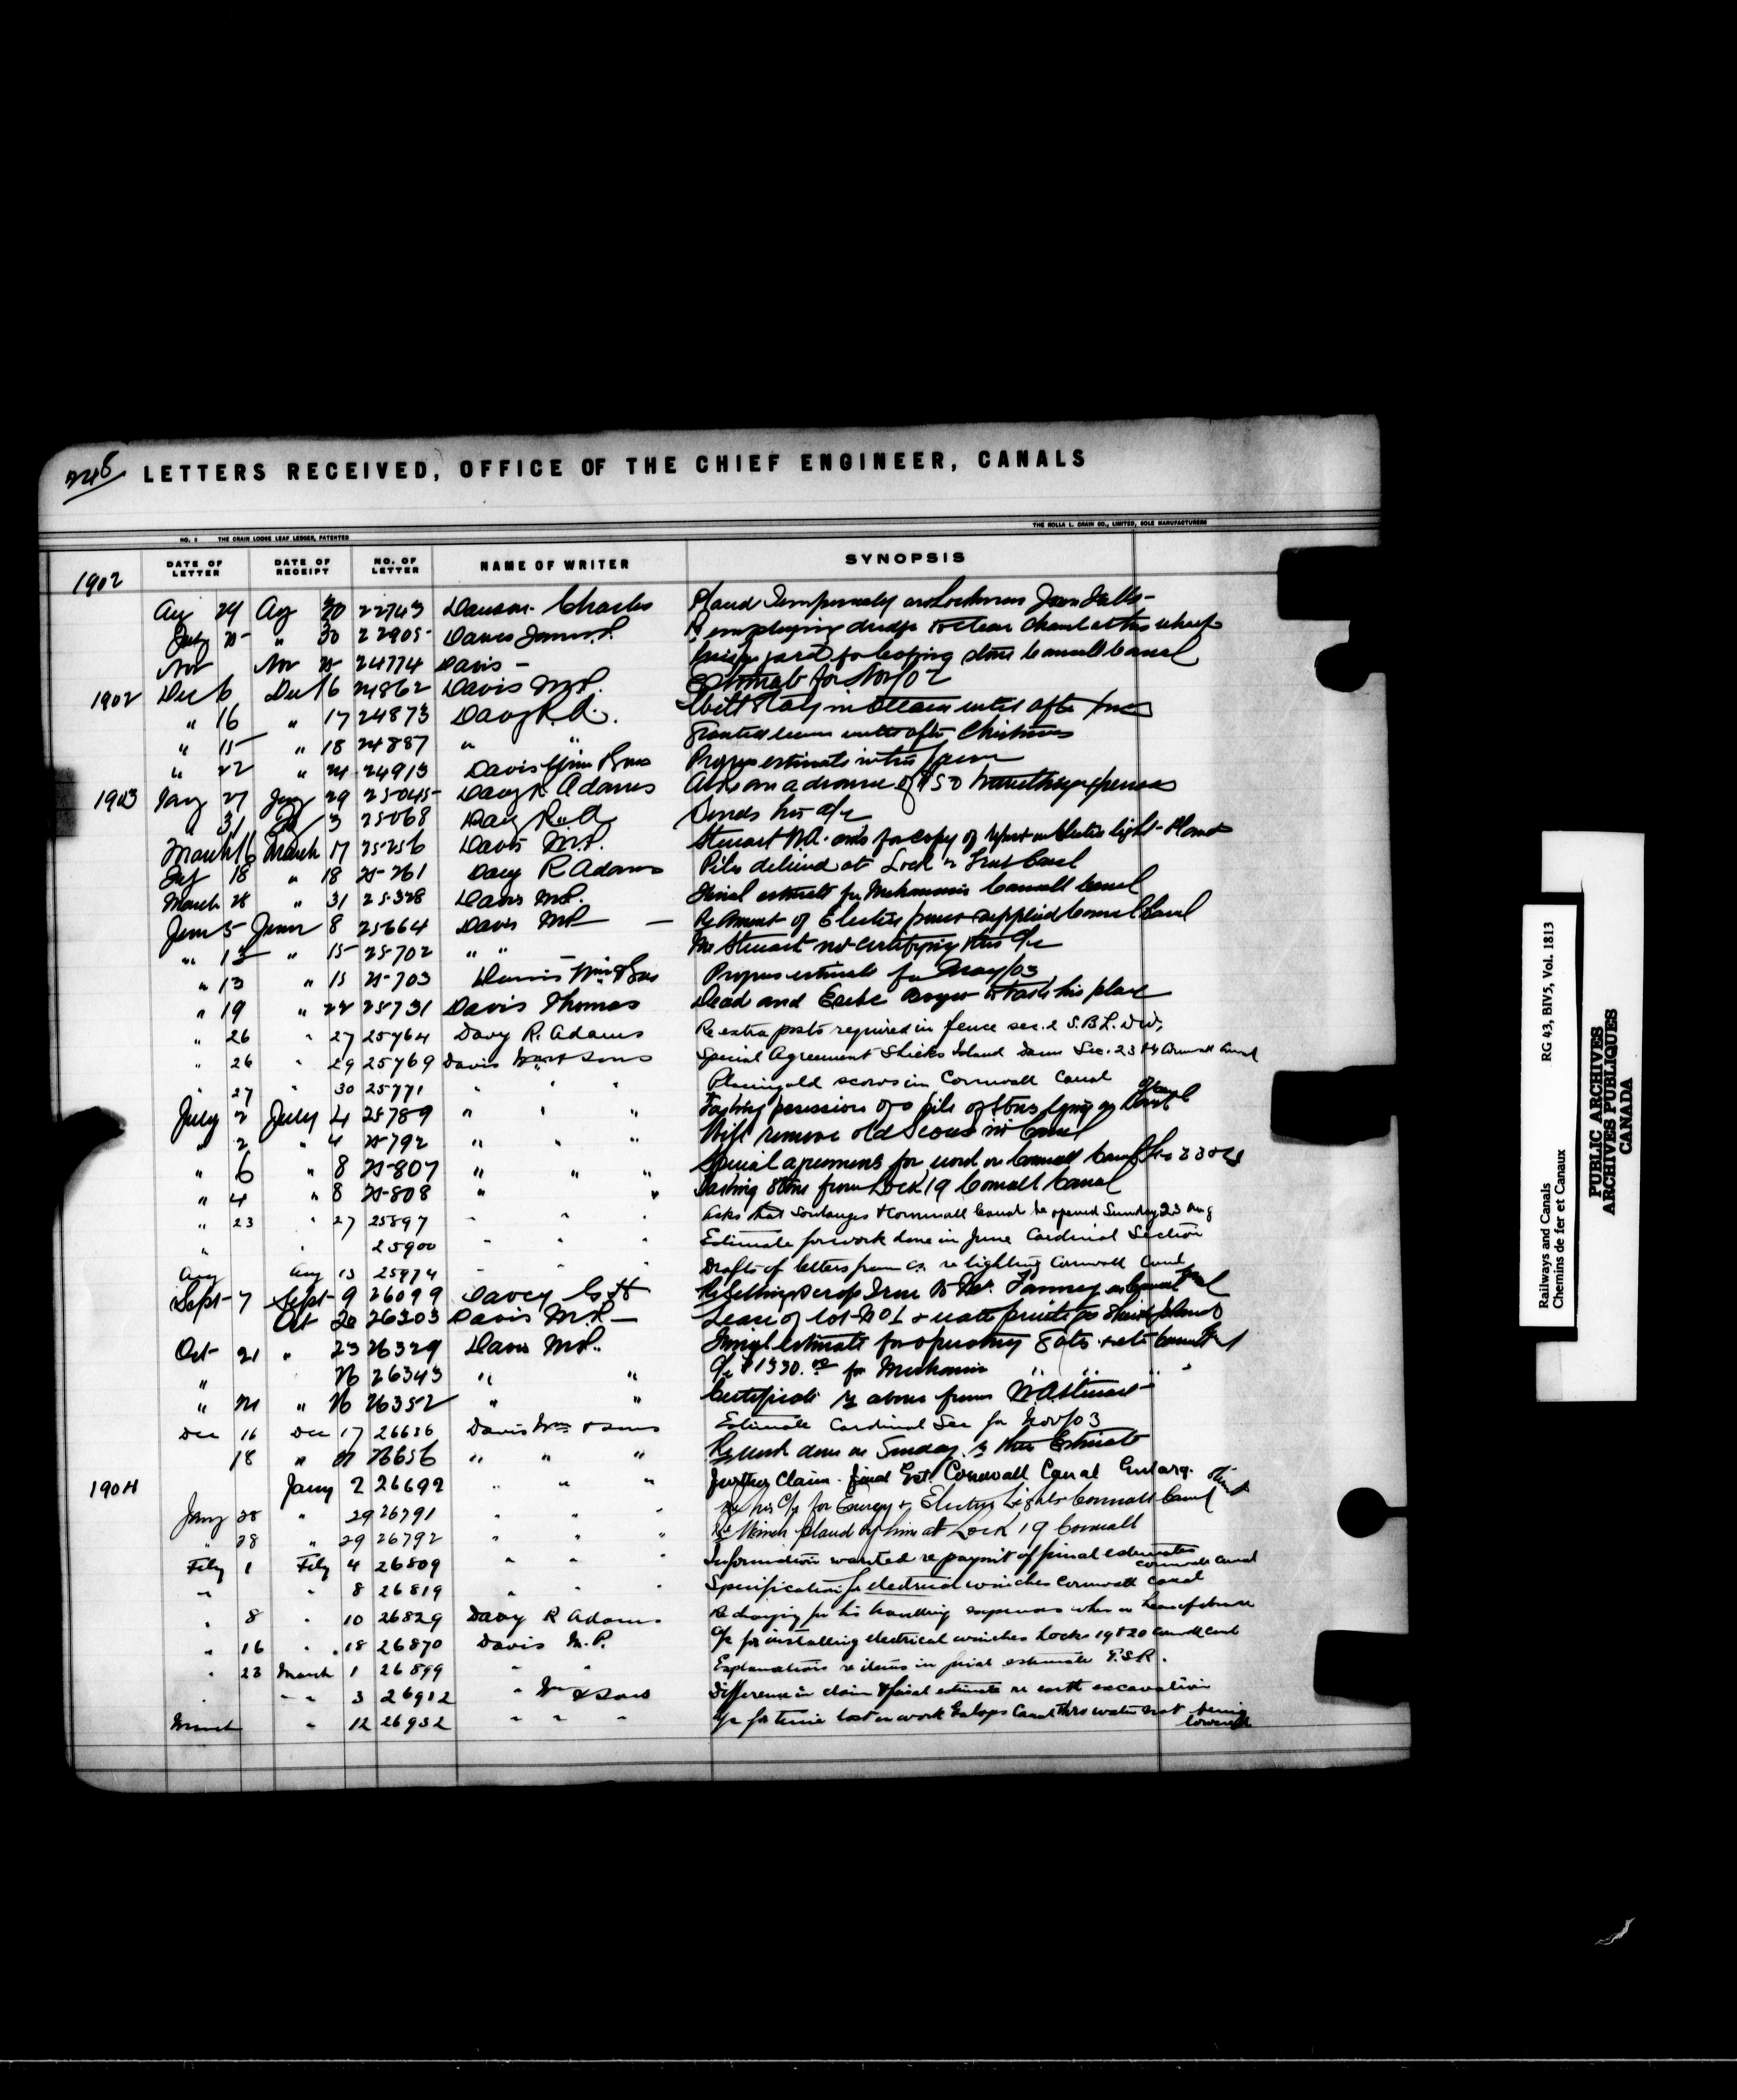 248 LETTERS RECEIVED, OFFICE OF THE CHIEF ENGINEER, CANALS
THE ROLLA L. CRAIN CO., LIMITED, SOLE MANUFACTURERS
NO. 1 THE CRAIN LOOSE LEAF LEDGER, PATENTED
DATE OF LETTER DATE OF RECEIPT NO. OF LETTER NAME OF WRITER SYNOPSIS
1902
Aug 29 Aug 30 22743 Charles Temporarily as Lockman Jones Falls
" 30 22905 James employing dredge to clear channel at his wharf
Nov Nov 24774 Davis - yard for coping stone Cornwall Canal
1902 Dec 6 Dec 16 24862 Davis M.P. Estimate for Nov/02
" 16 " 17 24873 Davy R.A. Will stay in until after
" 15 " 18 24887 " " Granted leave until after Christmas
" 22 " 24 24913 Davis Wm & Sons Progress estimate
1903 Jany 27 Jany 29 25045 Davy R Adams Asks an advance of $50 travelling expenses
" 31 3 25068 Davy R. A. Sends his a/c
March 16 March 17 25256 Davis M.P. Stewart W.A. asks for copy of report on Electric light Plant
18 " 18 25261 Davy R Adams Piles delivered at Lock 2 Trent Canal
March 28 " 31 25328 Davis M.P. Final estimate for Mechanism Cornwall Canal
June 5 June 8 25664 Davis M.P. - Re Amount of Electric power supplied Cornwall Canal
" 13 " 15 25702 " " Mr Stewart not certifying this a/c
" 13 " 15 25703 Davis Wm & Sons Progress estimate for May/03
" 19 " 22 25731 Davis Thomas Dead and to take his place
" 26 " 27 25764 Davy R. Adams Re extra posts required in fence sec. 2 S.B.L. Div.
" 26 " 29 25769 Davis Wm & Sons Special Agreement Sheiks Island Dam Sec. Cornwall Canal
" 27 " 30 25771 " " " Placing old scows in Cornwall Canal
July 2 July 4 25789 " " " Taking possession of pile of stone lying on bank of Canal
" 2 " 4 25792 " " " Will remove old Scows in Canal
" 6 " 8 25807 " " " Special agreement for work on Cornwall Canal
" 4 " 8 25808 " " Taking stone from Lock 19 Cornwall Canal
" 23 " 27 25897 " " " Asks that Soulanges & Cornwall Canal be opened Sunday 23 Aug
" " 25900 " " " Estimate for work done in June Cardinal Section
Aug Aug 13 25974 " " " Drafts of letters from Co. re lighting Cornwall Canal
Sept 7 Sept 9 26099 Davey G H Re Selling Scrap Iron to
Oct 20 26303 Davis M.P. - Lease of lot No 1 & water privileges
Oct 21 " 23 26329 Davis M.P. Final estimate for operating Gates Cornwall Canal
" 26 26343 " " a/c $1330.00 for Mechanism " " "
" 24 " 26 26352 " " Certificate re above from W.A. Stewart
Dec 16 Dec 17 26636 Davis Wm & Sons Estimate Cardinal Sec for Nov/03
18 " 26656 " " " Re work done on Sunday re this Estimate
1904 Jany 2 26692 " " " Further Claim. final Est. Cornwall Canal Enlarg.
Jany 28 " 29 26791 " " " Re his a/c for Energy & Electric Lights Cornwall Canal
" 28 " 29 26792 " " " Re Winch placed by him at Lock 19 Cornwall
Feby 1 Feby 4 26809 " " " Information wanted re paymt of final estimates Cornwall Canal
" " 8 26819 " " " Specification for electrical winches Cornwall Canal
" 8 " 10 26829 Davy R Adams Re charging for his travelling expenses when on leave of absence
" 16 " 18 26870 Davis M.P. a/c for installing electrical winches Locks 19 & 20 Cornwall Canal
" 23 March 1 26899 " " Explanations re items in final estimate P.S.R.
" " " 3 26912 " Wm & Sons Difference in claim & final estimate re earth excavation
March " 12 26932 " " " a/c for time lost on work Galops Canal thro water not being lowered
Railways and Canals RG 43, BIV5, Vol. 1813
Chemins de fer et Canaux
PUBLIC ARCHIVES
ARCHIVES PUBLIQUES
CANADA